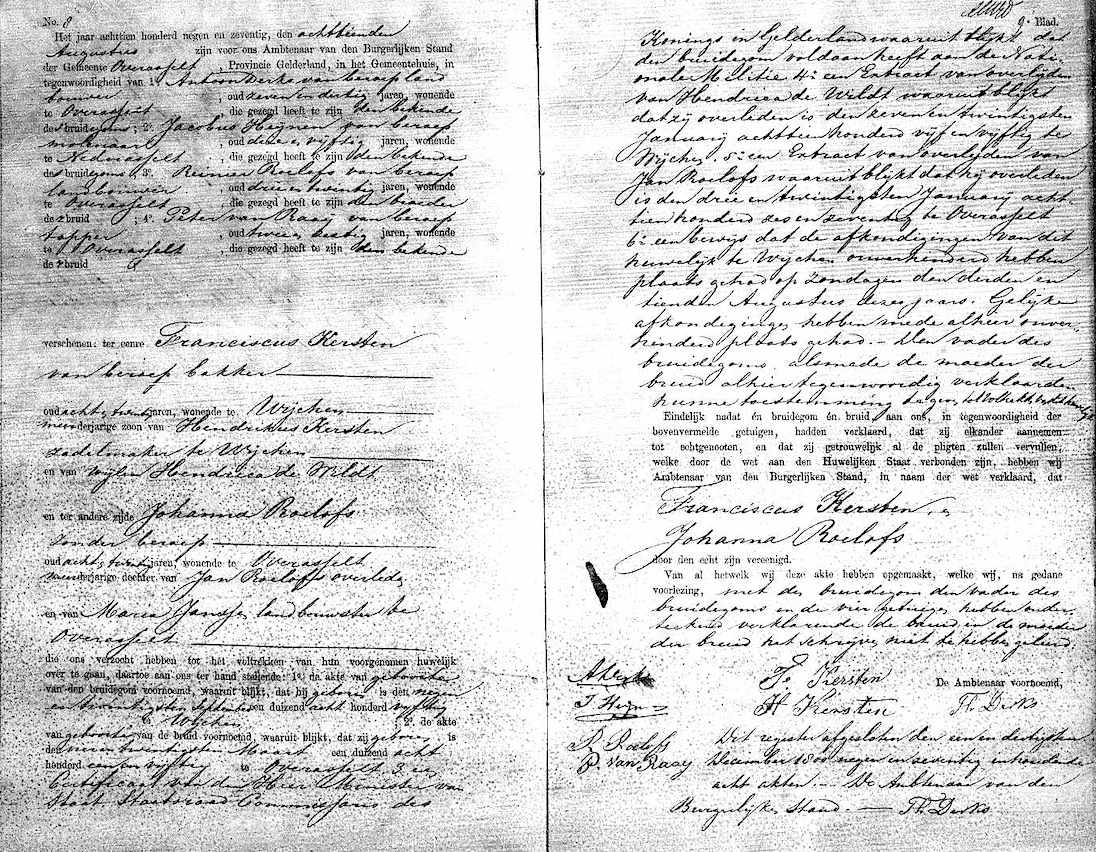 No. 8
Het jaar achttien honderd negen en zeventig, den achttienden
Augustus zijn voor ons Ambtenaar van den Burgerlijken Stand
der Gemeente Overasselt, Provincie Gelderland, in het Gemeentehuis, in
tegenwoordigheid van 1º. Antoon Derks van beroep land
bouwer, oud zeven en dertig jaren, wonende
te Overasselt, die gezegd heeft te zijn den bekende
des bruidegoms; 2º. Jacobus Heijnen van beroep
molenaar, oud jaren, wonende
te Nederasselt, die gezegd heeft te zijn den bekende
des bruidegoms 3º. Reinier Roelofs van beroep
landbouwer, oud drie en twintig jaren, wonende
te Overasselt, die gezegd heeft te zijn den broeder
de r bruid; 4º. Peter van Raaij van beroep
tapper, oud jaren, wonende
te Overasselt, die gezegd heeft te zijn den bekende
de r bruid
verschenen: ter eenre Franciscus Kersten
van beroep bakker
oud acht en twintig jaren, wonende te Wijchen
meerderjarige zoon van Hendrikus Kersten
zadelmaker te Wijchen
en van wijlen Hendrica de Wildt
en ter andere zijde Johanna Roelofs
zonder beroep
oud acht en twintig jaren, wonende te Overasselt
meerderjarige dochter van Jan Roelofs overlede
en van Maria Jansse, landbouwster te
Overasselt
die ons verzocht hebben tot het voltrekken van hun voorgenomen huwelijk
over te gaan, daartoe aan ons ter hand stellende: 1º. de akte van geboorte
van den bruidegom voornoemd, waaruit blijkt, dat hij geboren is den negen
en twintigsten September een duizend acht honderd vijftig
te Wijchen 2º. de akte
van geboorte van de bruid voornoemd, waaruit blijkt, dat zij geboren is
den twintigsten Maart een duizend acht
honderd een en vijftig te Overasselt 3º. een
Certificaat van den Heer Minister van
Staat Staatsraad Commissaris des
9e. Blad.
Konings in Gelderland waaruit blijkt dat
den bruidegom voldaan heeft aan de Nati-
onale Militie, 4º. een Extract van overlijden
van Hendrica de Wildt waaruit blijkt
dat zij overleden is den zeven en twintigsten
Januarij achttien honderd vijf en vijftig te
Wijchen. 5º. een Extract van overlijden van
Jan Roelofs waaruit blijkt dat hij overleden
is den drie en twintigsten Januarij acht-
tien honderd zes en zeventig te Overasselt
6º. een bewijs dat de afkondigingen van dit
huwelijk te Wijchen onverhinderd hebben
plaats gehad op Zondagen den derden en
tienden Augustus dezes jaars. Gelijke
afkondigingen hebben mede alhier onver-
hinderd plaats gehad. – Den vader des
bruidegoms alsmede de moeder der
bruid alhier tegenwoordig verklaarden
hunne toestemming te geven
Eindelijk nadat én bruidegom én bruid aan ons, in tegenwoordigheid der
bovenvermelde getuigen, hadden verklaard, dat zij elkander aannemen
tot echtgenooten, en dat zij getrouwelijk al de pligten zullen vervullen,
welke door de wet aan den Huwelijken Staat verbonden zijn, hebben wij
Ambtenaar van den Burgerlijken Stand, in naam der wet verklaard, dat
Franciscus Kersten en
Johanna Roelofs
door den echt zijn vereenigd.
Van al hetwelk wij deze akte hebben opgemaakt, welke wij, na gedane
voorlezing, met den bruidegom den vader des
bruidegoms en de vier getuigen hebben onder-
teekend verklarende de bruid en de moeder
der bruid het schrijven niet te hebben geleerd.
F. Kersten
De Ambtenaar voornoemd,
H Kersten
Th. Derks
P. Roelofs
P. van Raaij
Dit register afgesloten den een en dertigsten
December 1800 negen en zeventig inhoudende
acht akten. – De Ambtenaar van den
Burgerlijken Stand. – Th. Derks